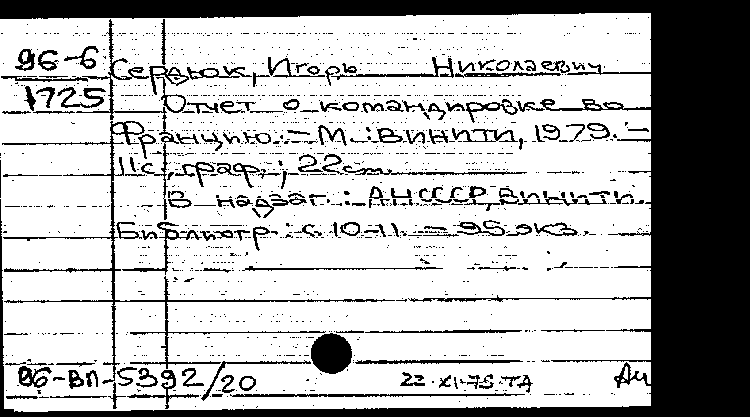 96-6 Сердюк, Игорь Николаевич
1725 Отчет о командировке во
Францию. - М.: ВИНИТИ, 1979. -
11с., граф.; 22см.
В надзаг.: АН СССР, ВИНИТИ.
Библиогр.: с. 10-11. - 95 экз.
96-ВП-5392/20 22-XI-75 ТА